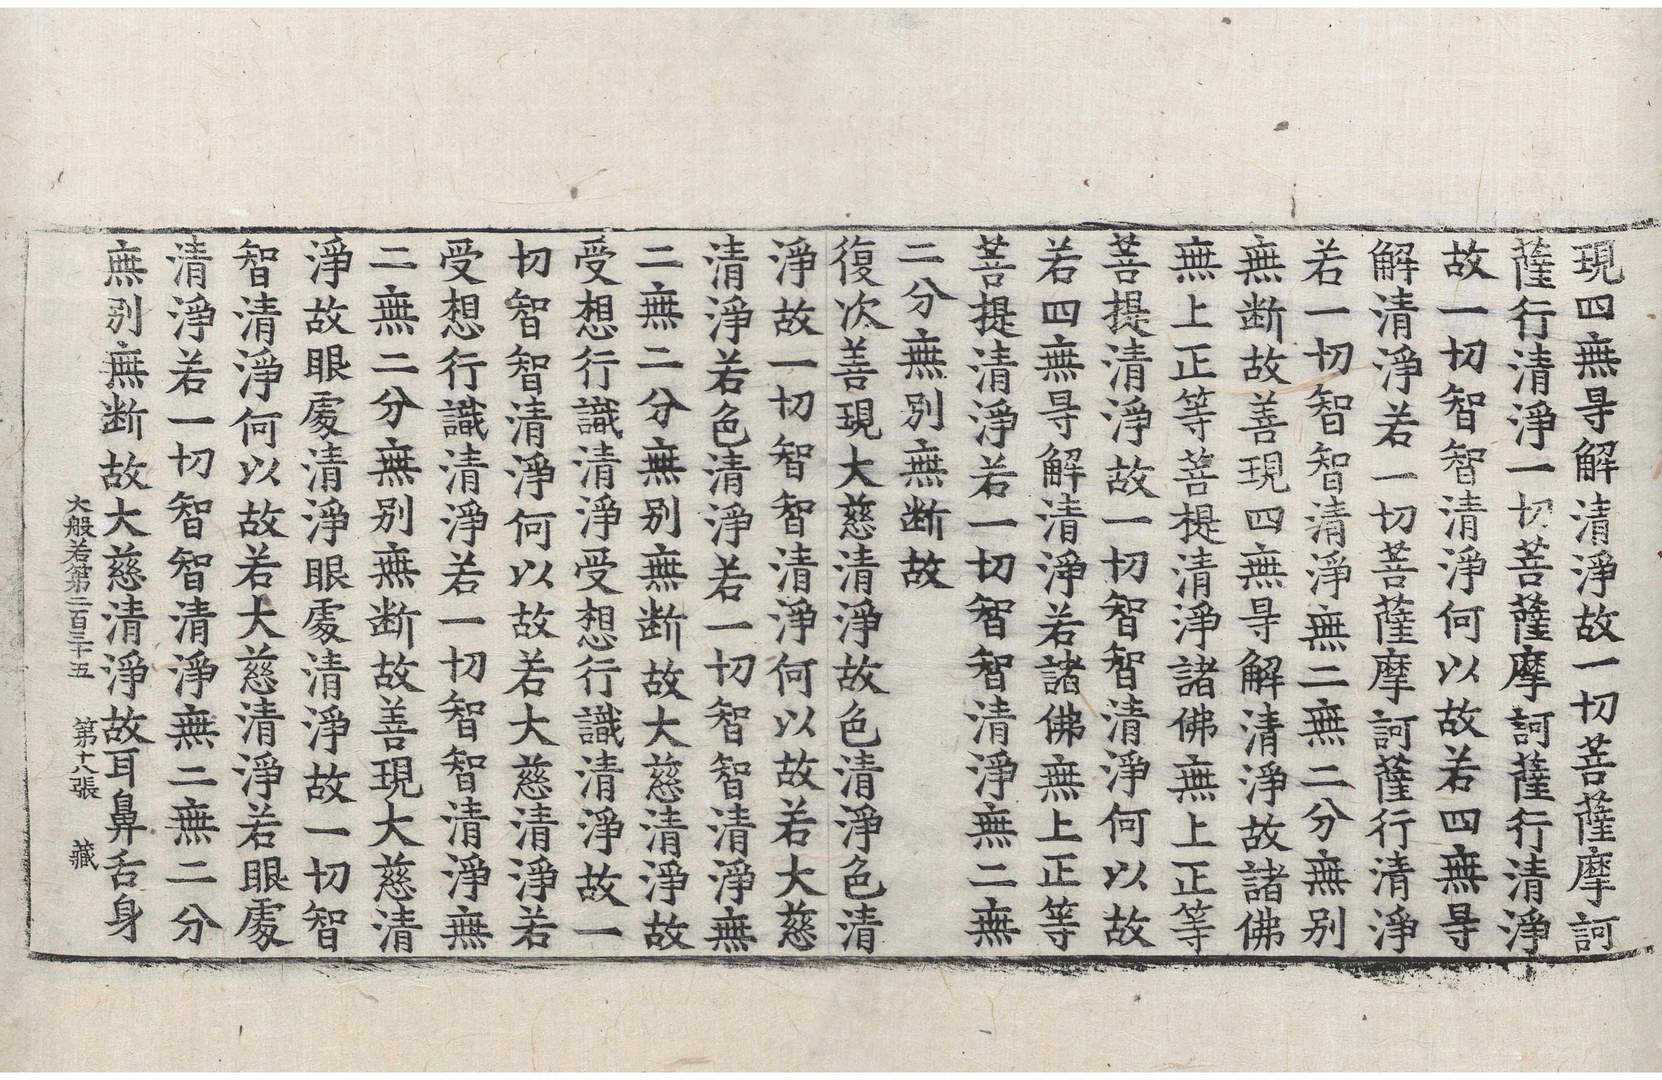 現四無㝵解清淨故一切菩薩摩訶
薩行清淨一切菩薩摩訶薩行清淨
故一切智智清淨何以故若四無㝵
解清淨若一切菩薩摩訶薩行清淨
若一切智智清淨無二無二分無別
無断故善現四無㝵解清淨故諸佛
無上正等菩提清淨諸佛無上正等
菩提清淨故一切智智清淨何以故
若四無㝵解清淨若諸佛無上正等
菩提清淨若一切智智清淨無二無
二分無別無断故
復次善現大慈清淨故色清淨色清
淨故一切智智清淨何以故若大慈
清淨若色清淨若一切智智清淨無
二無二分無別無断故大慈清淨故
受想行識清淨受想行識清淨故一
切智智清淨何以故若大慈清淨若
受想行識清淨若一切智智清淨無
二無二分無別無断故善現大慈清
淨故眼處清淨眼處清淨故一切智
智清淨何以故若大慈清淨若眼處
清淨若一切智智清淨無二無二分
無別無断故大慈清淨故耳鼻舌身
大般若第二百三十五 第十八張 藏